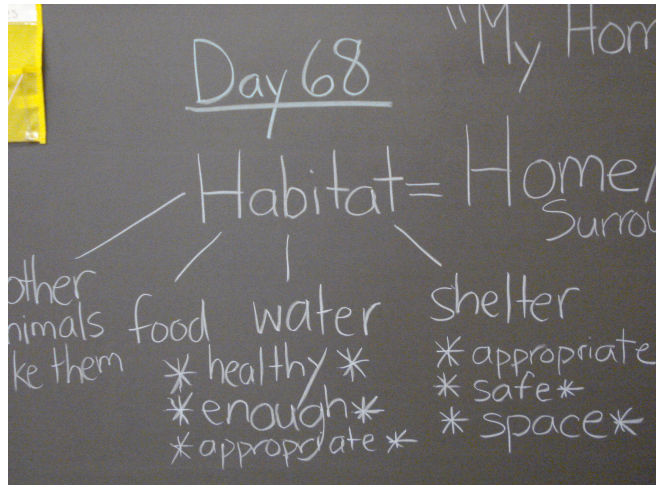 "My Hom
Day 68
Habitat = Home/
Surrou
other
nimals
ke them
food water
* healthy *
* enough *
* appropriate *
shelter
* appropriate
* safe *
* space *